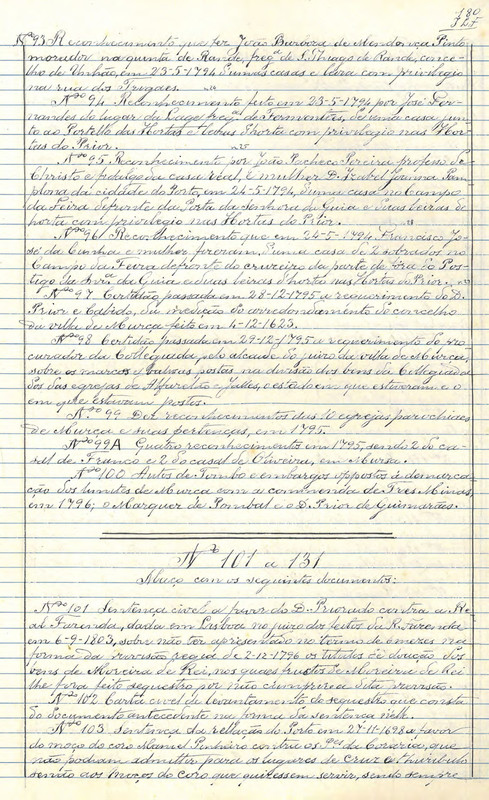 180
Nº 93 Reconhecimento que fez João Barboza de Mendonça Pinto
morador na quinta de Rande, freg.ª de S. Thiago de Rande, conce-
lho de Unhão, em 23-5-1794 d'umas casas e leira com privilegio
na rua dos
Nº 94 Reconhecimento feito em 23-5-1794, por José Fer-
nandes do lugar da Lage freg.ª de Fermentões, de uma casa jun-
to ao Postello das Hortas e leiras d'horta com privilegio nas Hor-
tas do Prior.
Nº 95 Reconhecimento por João Pacheco Pereira professo de
Christo e fidalgo da casa real, e mulher D. Izabel Joanna Pam-
plona da cidade do Porto, em 24-5-1794, d'uma casa no Campo
da Feira defronte da Porta da Senhora da Guia e duas leiras de
horta com privilegio nas Hortas do Prior.
Nº 96 Reconhecimento que em 24-5-1794, Francisco Jo-
sé da Cunha e mulher fizeram, d'uma casa de 2 sobrados no
Campo da Feira defronte do cruzeiro da parte de fóra do Pos-
tigo da Snrª da Guia e duas leiras d'horta nas Hortas do Prior.
Nº 97 Certidão passada em 28-12-1795 a requerimento do D.
Prior e Cabido, da medição do arredondamento do concelho
da villa de Murça feito em 4-12-1623.
Nº 98 Certidão passada em 29-12-1795 a requerimento do pro-
curador da Collegiada pelo alcaide do juizo da villa de Murça,
sobre os marcos e balisas postas na divisão dos bens da Collegiada
dos das egrejas de Alfarella e Jalles, o estado em que estiveram e o
em que estavam postos.
Nº 99 Dez reconhecimentos das 10 egrejas parochiaes
de Murça e suas pertenças, em 1795.
Nº 99 A Quatro reconhecimento em 1795, sendo 2 do ca-
sal de Franco e 2 do casal de Oliveira, em Murça.
Nº 100 Autos de Tombo e embargos oppostos á demarca-
ção dos limites de Murça com a commenda de Tres Minas,
em 1796; o Marquez de Pombal e o D. Prior de Guimarães.
Nº 101 a 131
Maço com os seguintes documentos:
Nº 101 Sentença civel a favor do D. Priorado contra a Re-
al Fazenda, dada em Lisboa no juizo dos feitos da R. Fazenda
em 6-9-1803, sobre não ter apresentado no termo de 6 mezes na
forma da provisão regia de 2-12-1796 os titulos de doação dos
bens de Moreira de Rei, nos quaes fructos de Moreira de Rei
lhe fôra feito sequestro por não cumprir a dita provisão.
Nº 102 Carta civel de levantamento de sequestro que consta
do documento antecedente na forma da sentença
Nº 103 Sentença da relação do Porto em 27-11-1698 a favor
do moço do coro Manuel Pinheiro contra os P.es da Coraria, que
não podiam admittir para os lugares de cruz e thuribulo
senão aos moços do coro que quizessem servir, sendo sempre